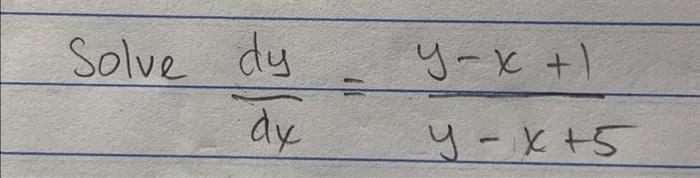 Solve dy/dx = (y-x+1)/(y-x+5)